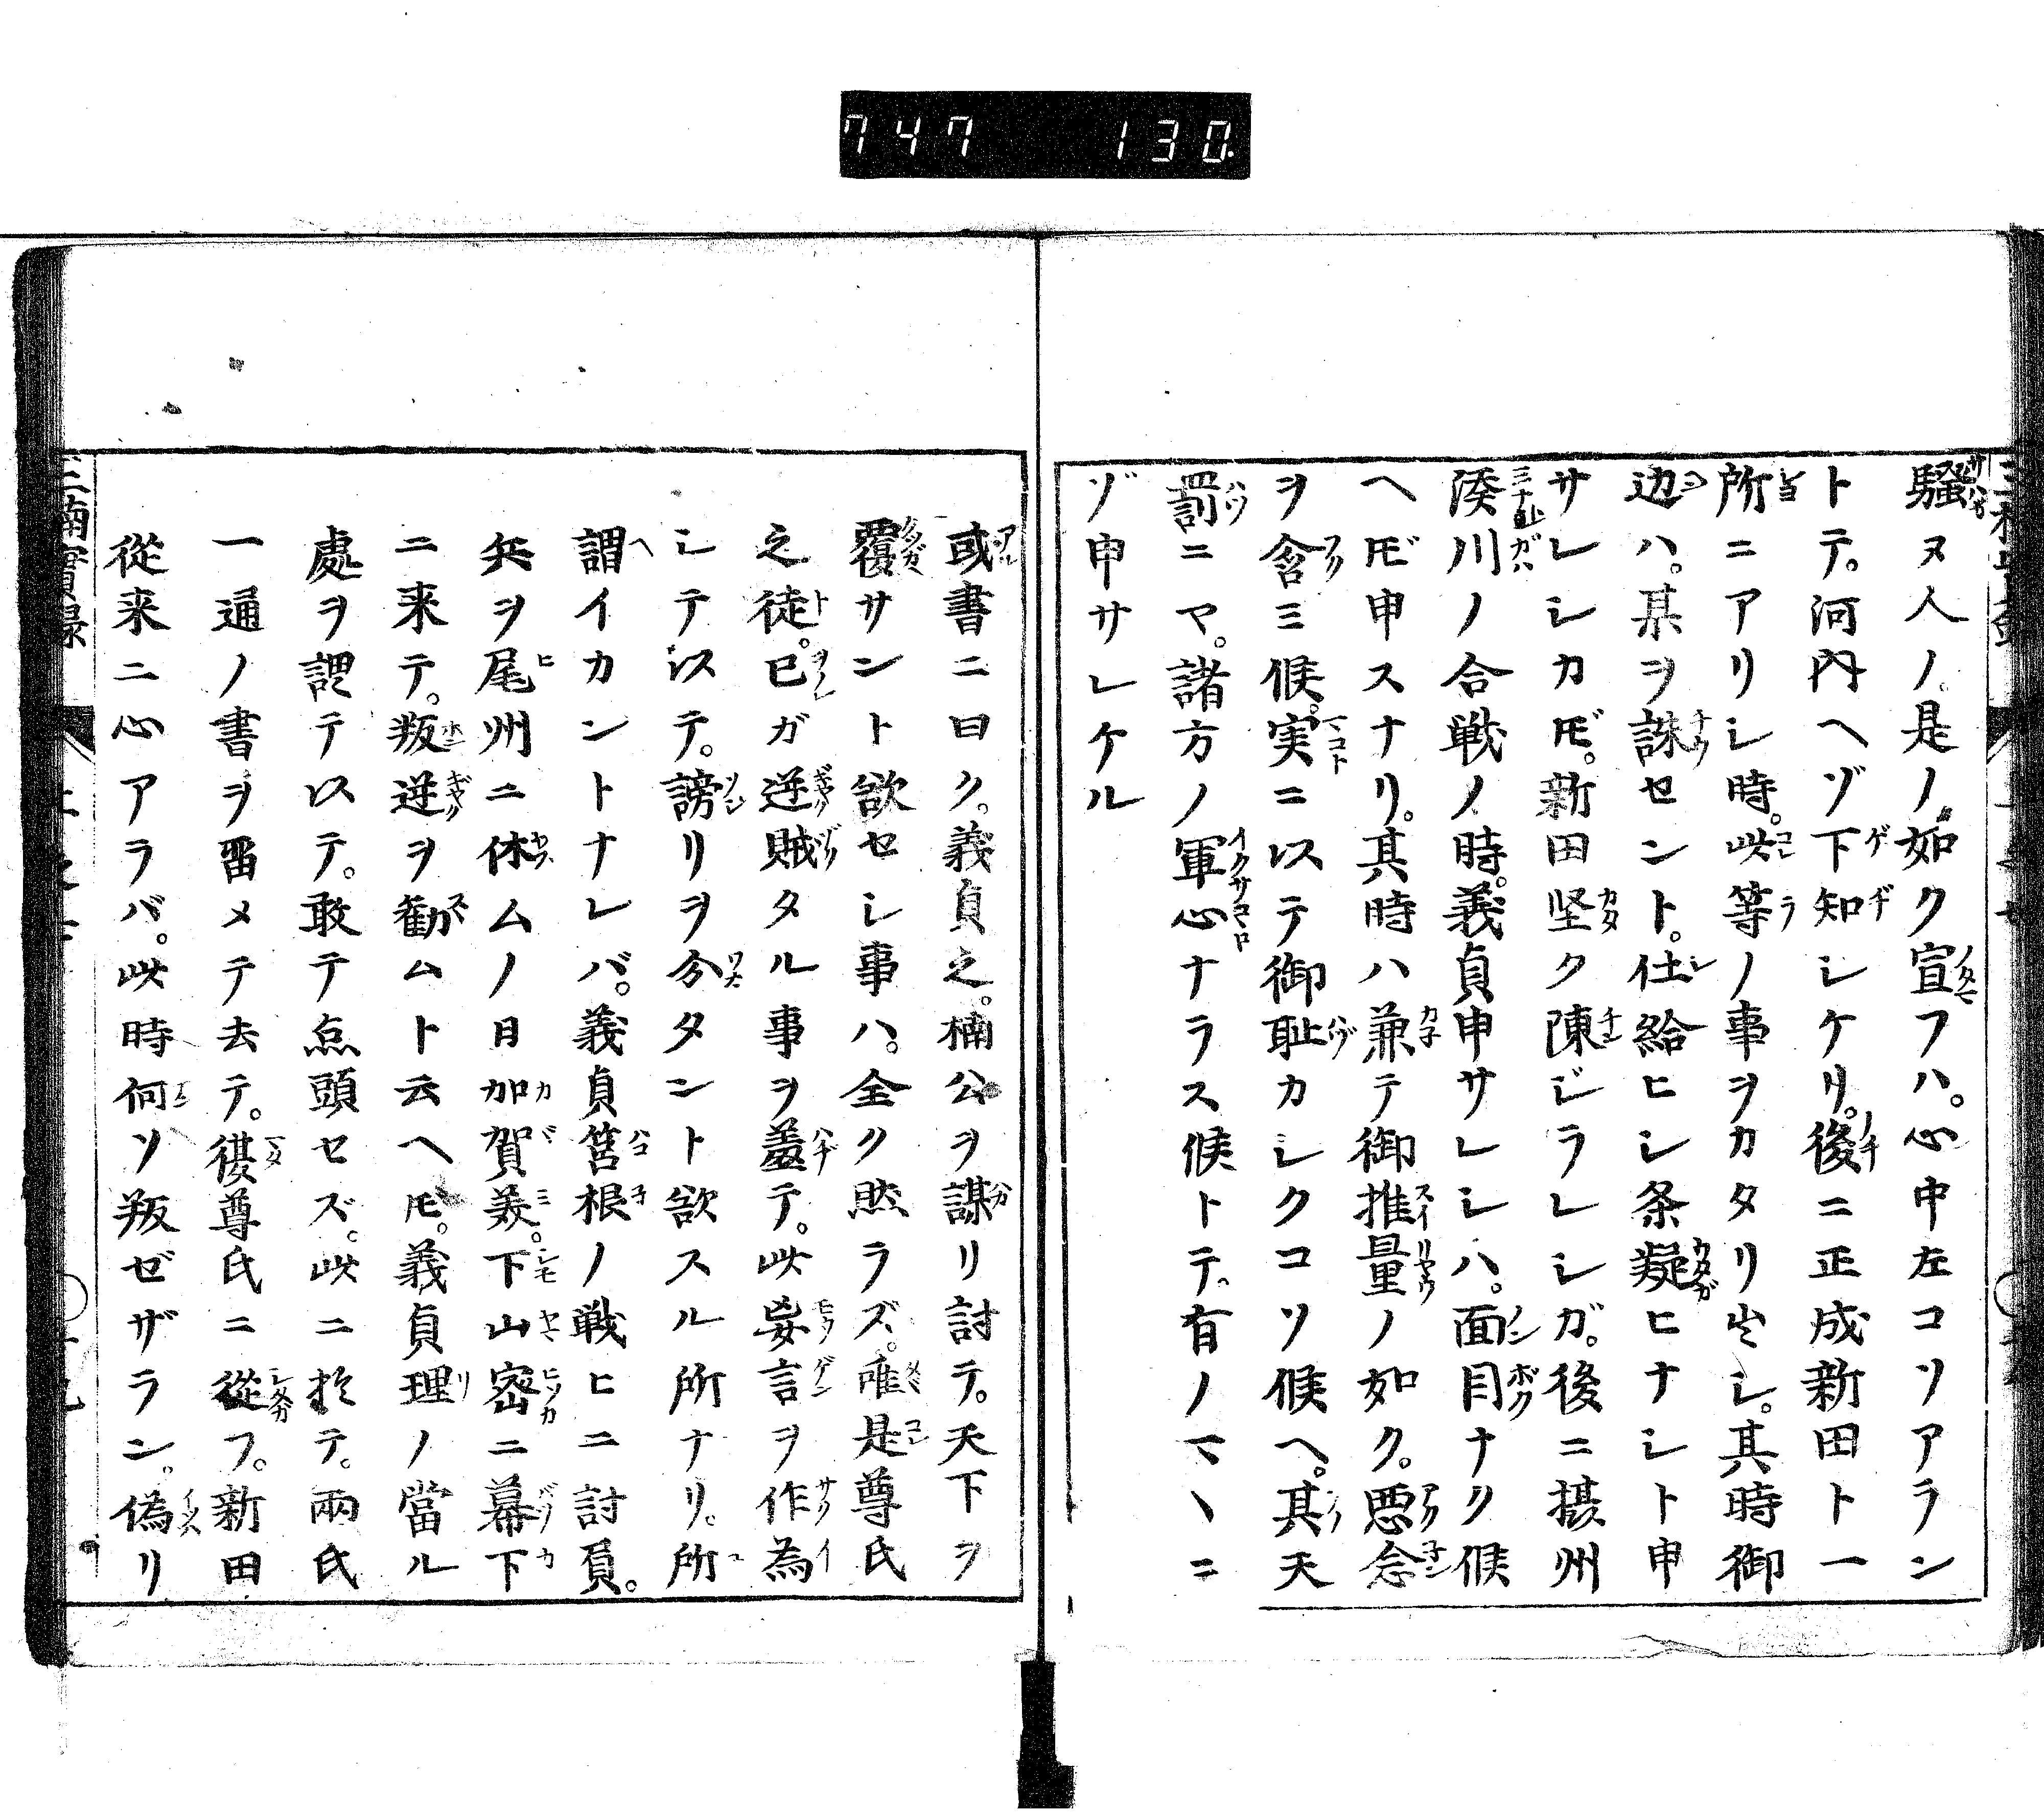 747 130
騒ヌ人ノ。是ノ如ク宣フハ。心中左コソアラン
トテ。河内ヘゾ下知シケリ。後ニ正成新田ト一
所ニアリシ時。此等ノ事ヲカタリ出シ。其時御
辺ハ。某ヲ誅セント。仕給ヒシ条疑ヒナシト申
サレシカ𪜈。新田堅ク陳ジラレシガ。後ニ摂州
湊川ノ合戦ノ時。義貞申サレシハ。面目ナク候
ヘ𪜈申スナリ。其時ハ兼テ御推量ノ如ク。悪念
ヲ含ミ候。実ニ以テ御恥カシクコソ候ヘ。其天
罰ニヤ。諸方ノ軍心ナラス候トテ。有ノマヽニ
ゾ申サレケル
或書ニ曰ク。義貞之。楠公ヲ謀リ討テ。天下ヲ
覆サント欲セシ事ハ。全ク然ラズ。唯是尊氏
之徒。已ガ逆賊タル事ヲ羞テ。此妄言ヲ作為
シテ以テ。謗リヲ分タント欲スル所ナリ。所
謂イカントナレバ。義貞筥根ノ戦ヒニ討負。
兵ヲ尾州ニ休ムノ日加賀美。下山密ニ幕下
ニ来テ。叛逆ヲ勧ムト云ヘ𪜈。義貞理ノ當ル
處ヲ謂テ以テ。敢テ点頭セズ。此ニ於テ。兩氏
一通ノ書ヲ畱メテ去テ。復尊氏ニ從フ。新田
從来ニ心アラバ。此時何ソ叛ゼザラン。偽リ
三楠實録